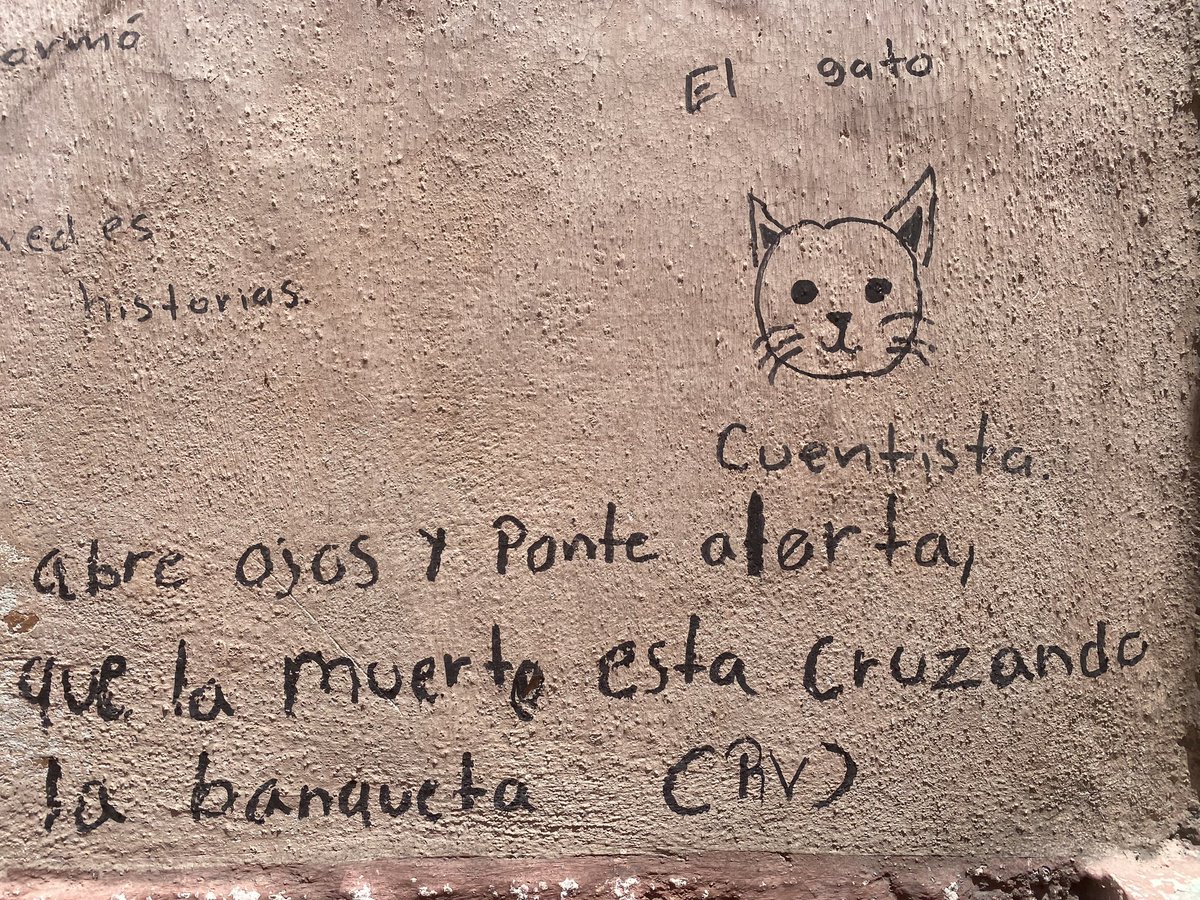 El gato
redes
historias.
Cuentista.
abre ojos y Ponte alerta,
que la muerte esta Cruzando
la banqueta (RV)